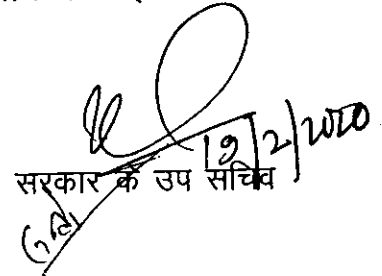 19/2/2020
सरकार के उप सचिव